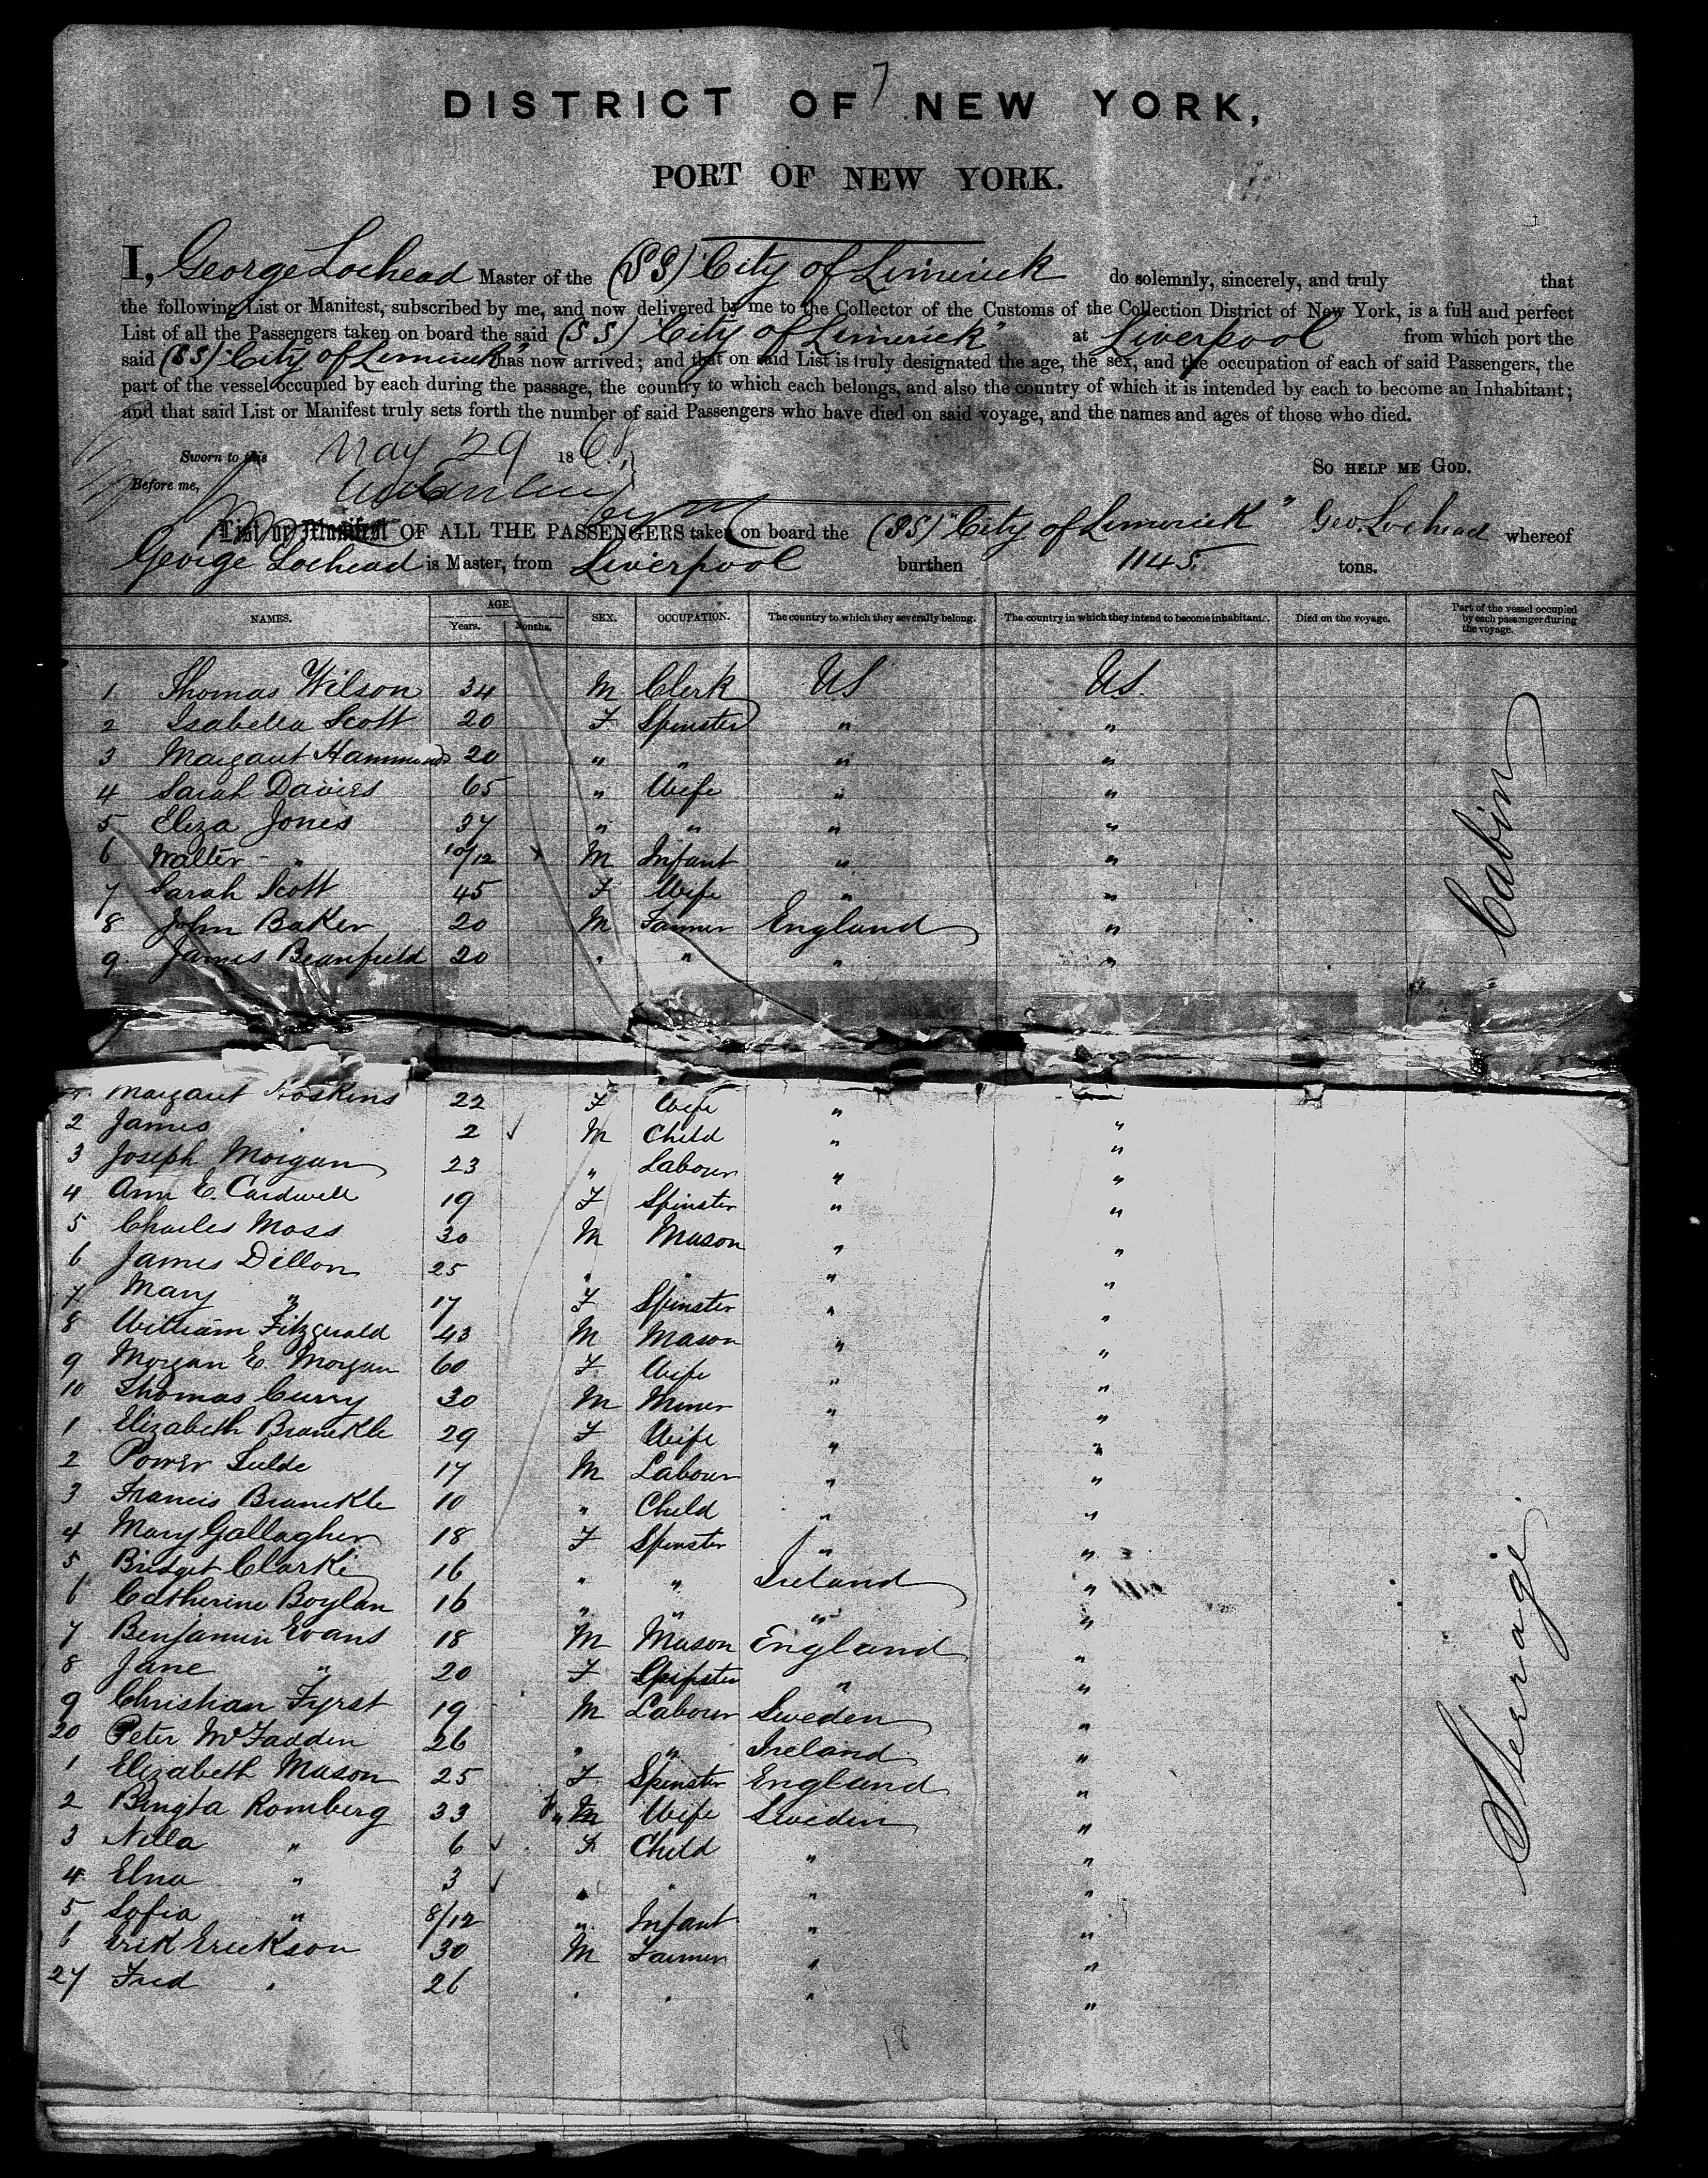 7
DISTRICT OF NEW YORK,
PORT OF NEW YORK.
I, George Lochead Master of the (SS) "City of Limerick do solemnly, sincerely, and truly that
the following List or Manifest, subscribed by me, and now delivered by me to the Collector of the Customs of the Collection District of New York, is a full and perfect
List of all the Passengers taken on board the said (SS) "City of Limerick" at Liverpool from which port the
said (SS) "City of Limerick" has now arrived; and that on said List is truly designated the age, the sex, and the occupation of each of said Passengers, the
part of the vessel occupied by each during the passage, the country to which each belongs, and also the country of which it is intended by each to become an Inhabitant;
and that said List or Manifest truly sets forth the number of said Passengers who have died on said voyage, and the names and ages of those who died.
Sworn to this May 29 1868, SO HELP ME GOD.
Before me,
List or Manifest OF ALL THE PASSENGERS taken on board the (SS) "City of Limerick" Geo. Lochead whereof
George Lochead is Master, from Liverpool burthen 1145. tons.
NAMES. AGE. Years. Months. SEX. OCCUPATION. The country to which they severally belong. The country in which they intend to become inhabitants. Died on the voyage. Part of the vessel occupied by each passenger during the voyage.
1 Thomas Wilson 34 M Clerk US US.
2 Isabella Scott 20 F Spinster " "
3 Margaret Hammond 20 " " " "
4 Sarah Davies 65 " Wife " "
5 Eliza Jones 37 " " " "
6 Walter " 10/12 M Infant " "
7 Sarah Scott 45 F Wife " "
8 John Baker 20 M Farmer England "
9. James Beanfield 20 " " " "
Cabin
1 Margaret Hoskins 22 F Wife " "
2 James 2 ✓ M Child " "
3 Joseph Morgan 23 " Labour " "
4 Ann E. Cardwell 19 F Spinster " "
5 Charles Moss 30 M Mason " "
6 James Dillon 25 " " " "
7 Mary " 17 F Spinster " "
8 William Fitzgerald 43 M Mason " "
9 Morgan E. Morgan 60 F Wife " "
10 Thomas Curry 30 M Miner " "
1 Elizabeth Branckle 29 F Wife " "
2 Power 17 M Labour " "
3 Francis Branckle 10 " Child " "
4 Mary Gallagher 18 F Spinster " "
5 Bridget Clarke 16 " " Ireland "
6 Catherine Boylan 16 " " " "
7 Benjamin Evans 18 M Mason England "
8 Jane " 20 F Spinster " "
9 Christian Fyrst 19 M Labour Sweden "
20 Peter McFadden 26 " " Ireland "
1 Elizabeth Mason 25 F Spinster England "
2 Bengta Romberg 33 M Wife Sweden "
3 Nilla " 6 ✓ F Child " "
4 Elna " 3 ✓ " " " "
5 Sofia " 8/12 " Infant " "
6 Erik Erickson 30 M Farmer " "
27 Fred " 26 " " " "
Steerage